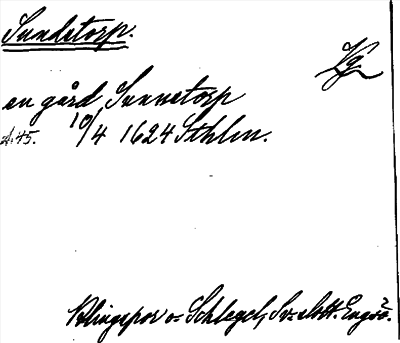 Sundetorp.
Vg.
en gård Sunnetorp
A:45. 10/4 1624 Sthlm.
Klingspor o- Schlegel, Sv. slott. Engsö.